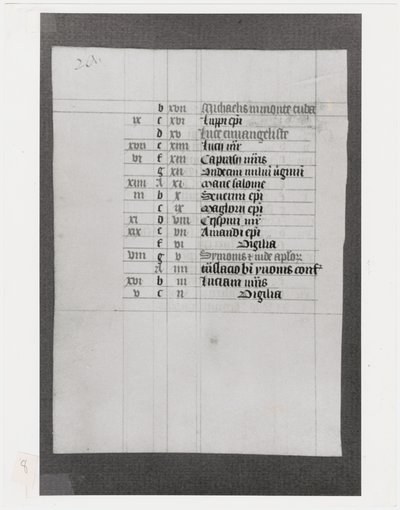 b xvii Michaelis in monte tuba
ix c xvi Luppi ep̄i
d xv Luce euuangeliste
xvii e xiiii mr̄
vi f xiii Caprasii mr̄is
g xii Undecim miliū uginū
xiiii A xi Marie salome
iii b x Seuerini ep̄i
c ix Maglorii ep̄i
xi d viii Crispini mr̄
xix e vii Amandi ep̄i
f vi Vigilia
viii g v Symonis & iude aplor
A iiii tn̄slacio bi yuonis conf
xvi b iii Luciani mr̄is
v c ii Vigilia
8